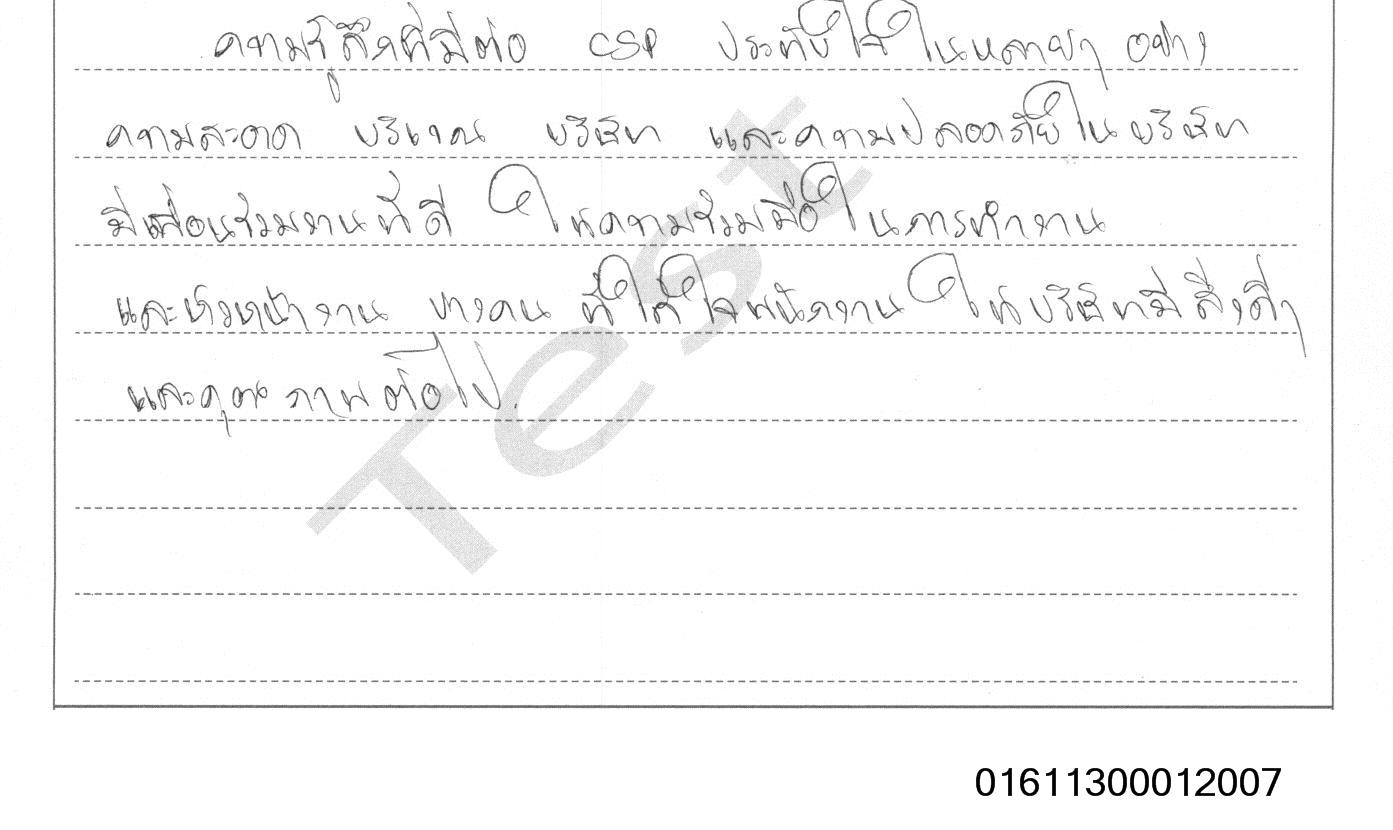 ความรู้สึกที่มีต่อ CSP ประทับใจในหลายๆ อย่าง
ความสะอาด บริเวณ บริษัท และความปลอดภัยในบริษัท
มีเพื่อนร่วมงานที่ดี ให้ความร่วมมือในการทำงาน
และหัวหน้างาน บางคน ที่ใส่ใจพนักงาน ให้บริษัทมีสิ่งดีๆ
และคุณภาพต่อไป.
Test
01611300012007